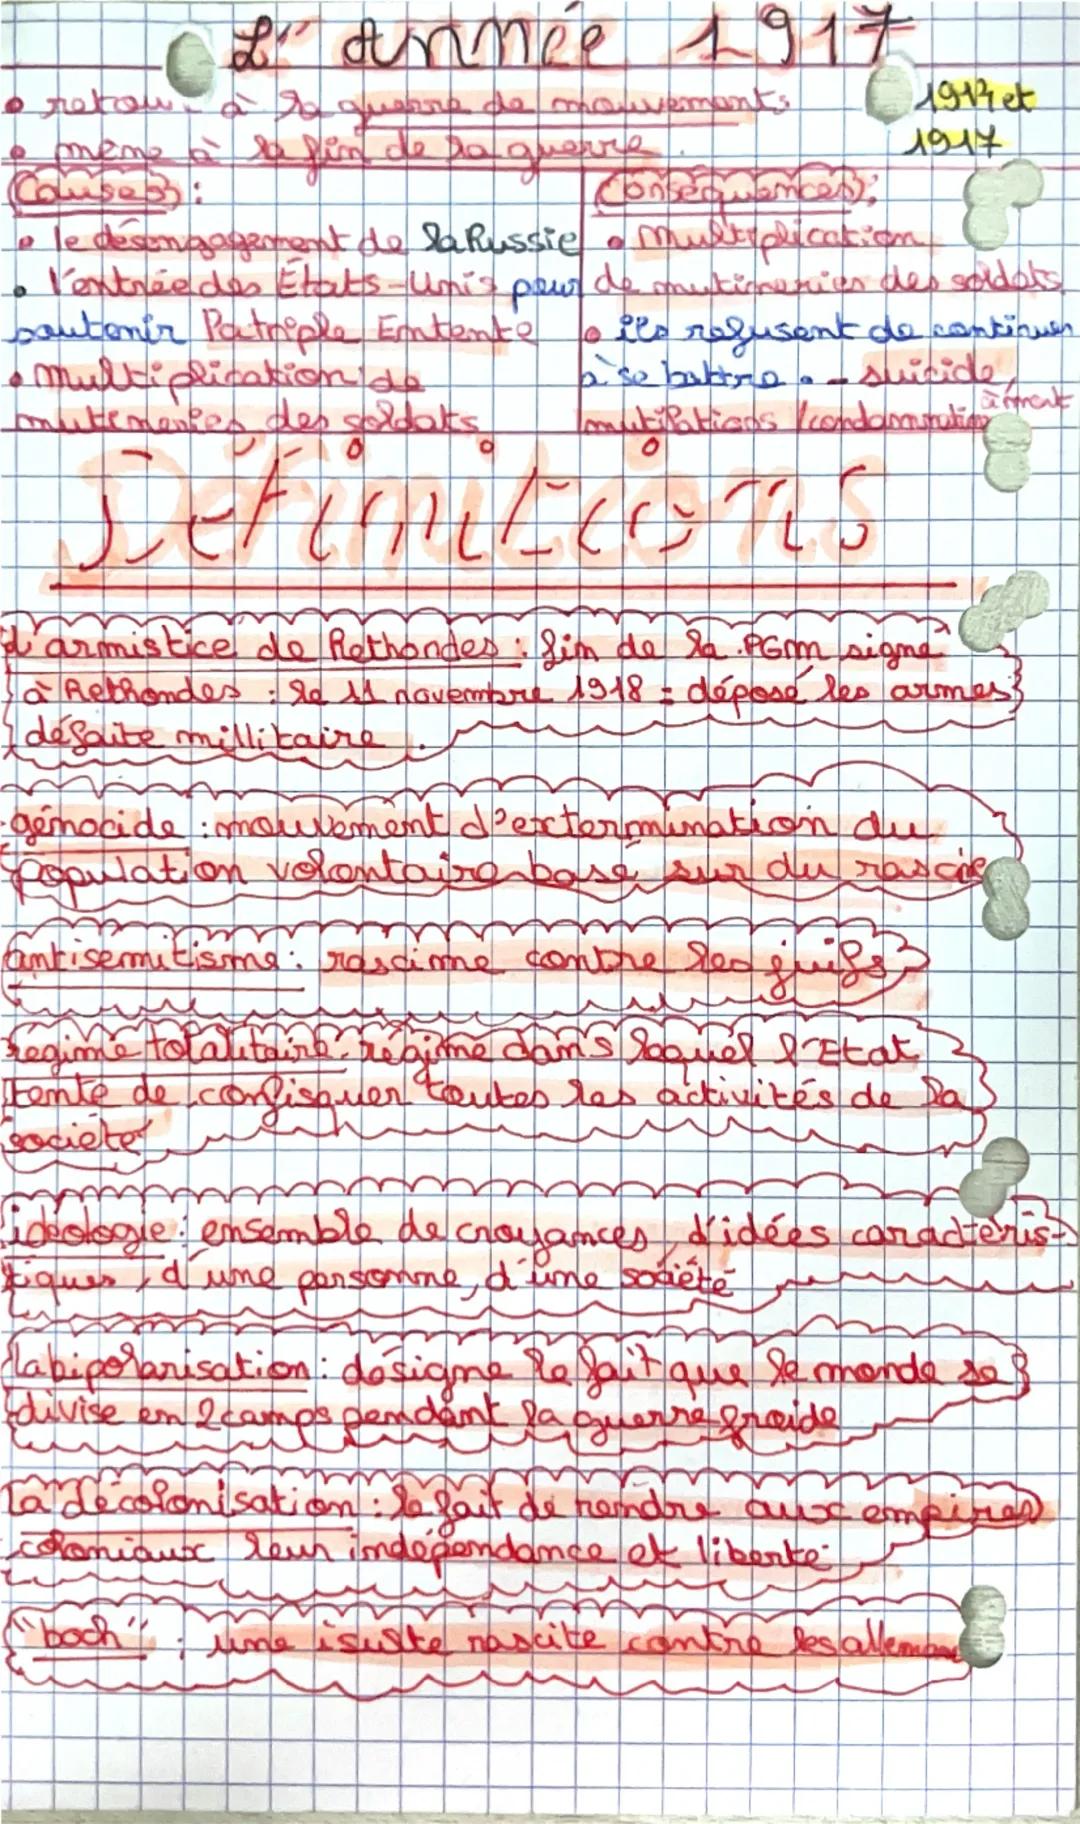 L'année 1917
• retour à la guerre de mouvements
1914 et
1917
• mène à la fin de la guerre.
Causes :
• le désengagement de la Russie
• l'entrée des États-Unis pour
soutenir la triple Entente
• multiplication de
mutineries des soldats
Conséquences :
• Multiplication
de mutineries des soldats
• ils refusent de continuer
à se battre. - suicide,
mutilations / condamnation
à mort
Définitions
L'armistice de Rethondes : fin de la PGM signé
à Rethondes : le 11 novembre 1918 = déposé les armes
défaite millitaire.
génocide : mouvement d'extermination du
population volontaire basé sur du
antisémitisme : rascime contre les juifs
régime totalitaire : régime dans lequel l'Etat
tente de confisquer toutes les activités de la
société
idéologie : ensemble de croyances, d'idées caractéris-
tiques, d'une personne, d'une société
la bipolarisation : désigne le fait que le monde se
divise en 2 camps pendant la guerre froide
La décolonisation : le fait de rendre aux empires
coloniaux leur indépendance et liberté.
"boch" : une isulte rascite contre les